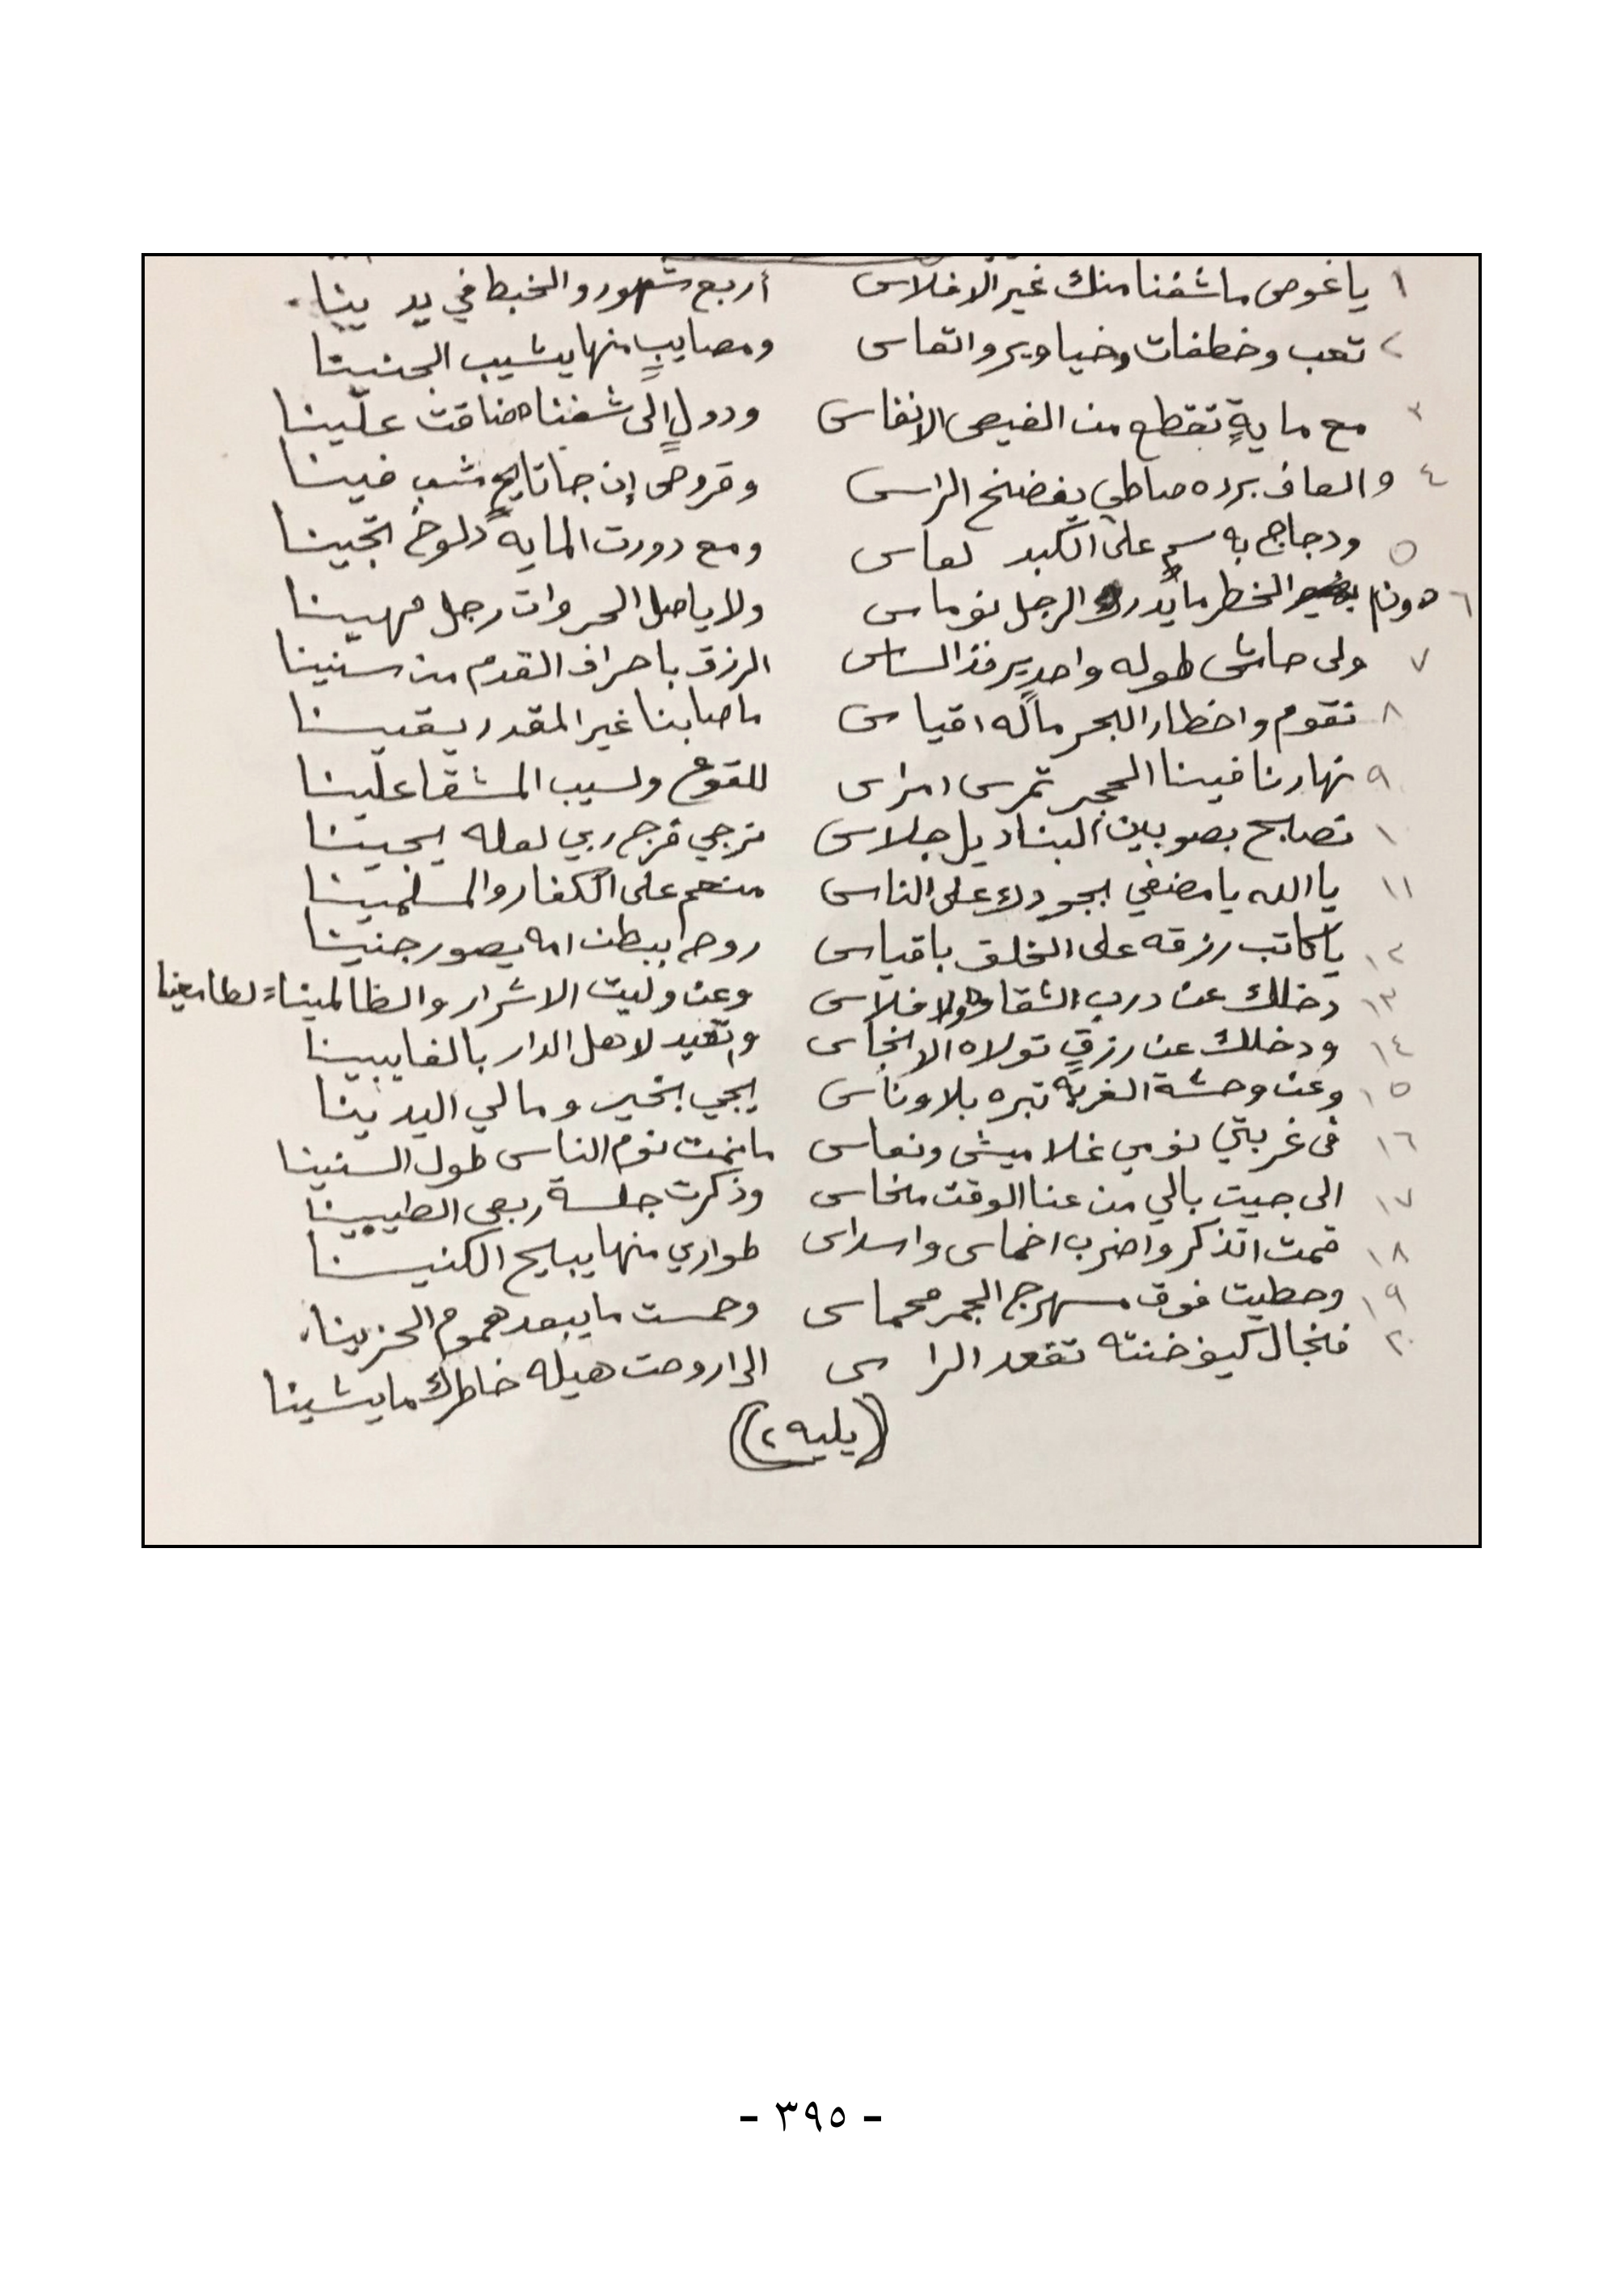 ١ ياغوص ماشفنا منك غير الافلاس أربع شهور والخبط في يدينا
٢ تعب وخطفات وخياوير واتعاس ومصايبٍ منها يشيب الجنينا
٣ مع مايةٍ تقطع من الغيص الانفاس ودولٍ إلى شفناه ضاقت علينا
٤ والعاف برده صاطي يفضخ الراس وقروص إن جا تايحٍ شب فينا
٥ ودجاج به سمٍ على الكبد لعاس ومع دورت المايه دلوخ اتجينا
٦ دون الخطر مايدرك الرجل نوماس ولا ياصل الحروات رجل مهينا
٧ ولى حاش طوله واحدٍ يرفذ الساس الرزق باحراف القدم من سنينا
٨ نقوم واخطار البحر ماله اقياس ماصابنا غير المقدر يقينا
٩ نهارنا فينا المحجر تمرس امراس للقوع ولسيب المشقا علينا
١٠ نصابح بصوبين البناديل جلاس نرجي فرج ربي لعله يجينا
١١ يا الله يا مضفي بجودك على الناس منعم على الكفار والمسلمينا
١٢ يا كاتب رزقه على الخلق باقياس روحٍ ببطن امه يصور جنينا
١٣ دخلك عن درب الشقا والافلاس وعن وليت الاشرار والظالمينا = لطامعينا
١٤ ودخلك عن رزقٍ تولاه الانجاس واتعيد لاهل الدار بالغايبينا
١٥ وعن وحشة الغربه تبره بلا وناس يجي بخير ومالي اليدينا
١٦ في غربتي نومي غلاميش ونعاس مانمت نوم الناس طول السنينا
١٧ الى جيت بالي من عنا الوقت منحاس وذكرت جلسة ربعي الطيبينا
١٨ قمت اتذكر واضرب اخماس واسداس طواري منها يبايح الكنينا
١٩ وحطيت فوق مسهرج الجمر محماس وحمست مايبعد هموم الحزينا
٢٠ فنجال كيف خنته تقعد الراس الى اروحت هيله خاطرك مايشينا
(يليه ٢)
- ٣٩٥ -